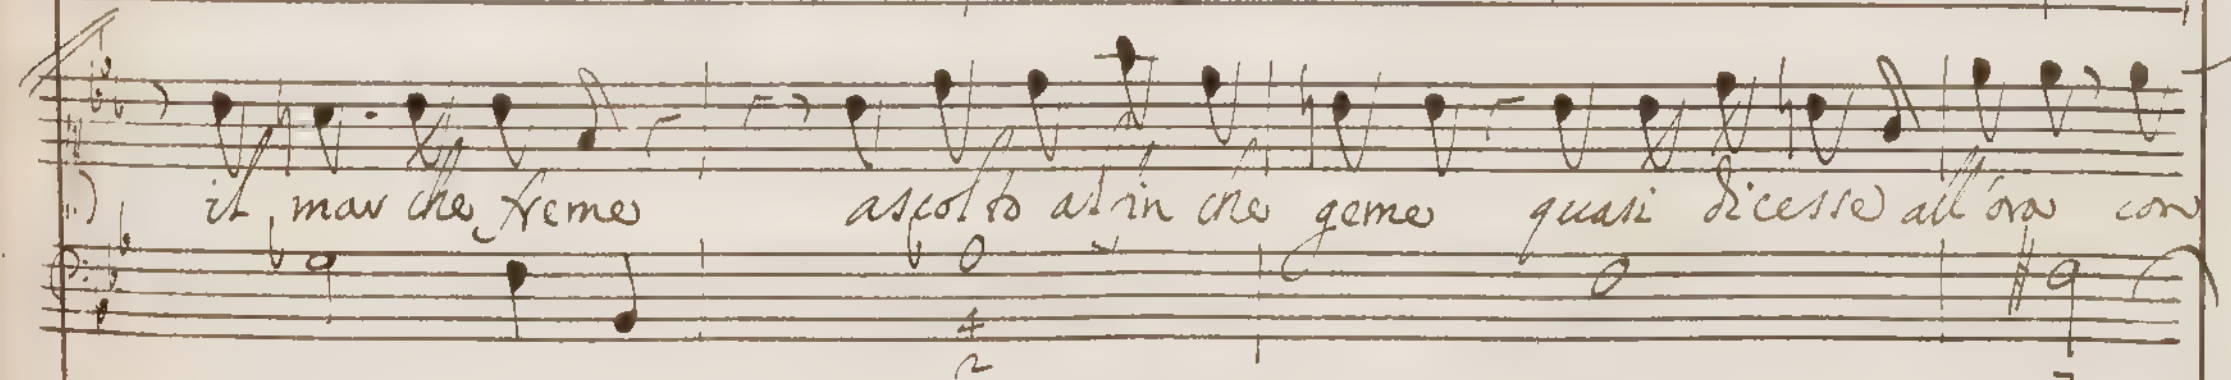 il mar che freme ascolto alfin che geme quasi dicesse all'ora con
4
2